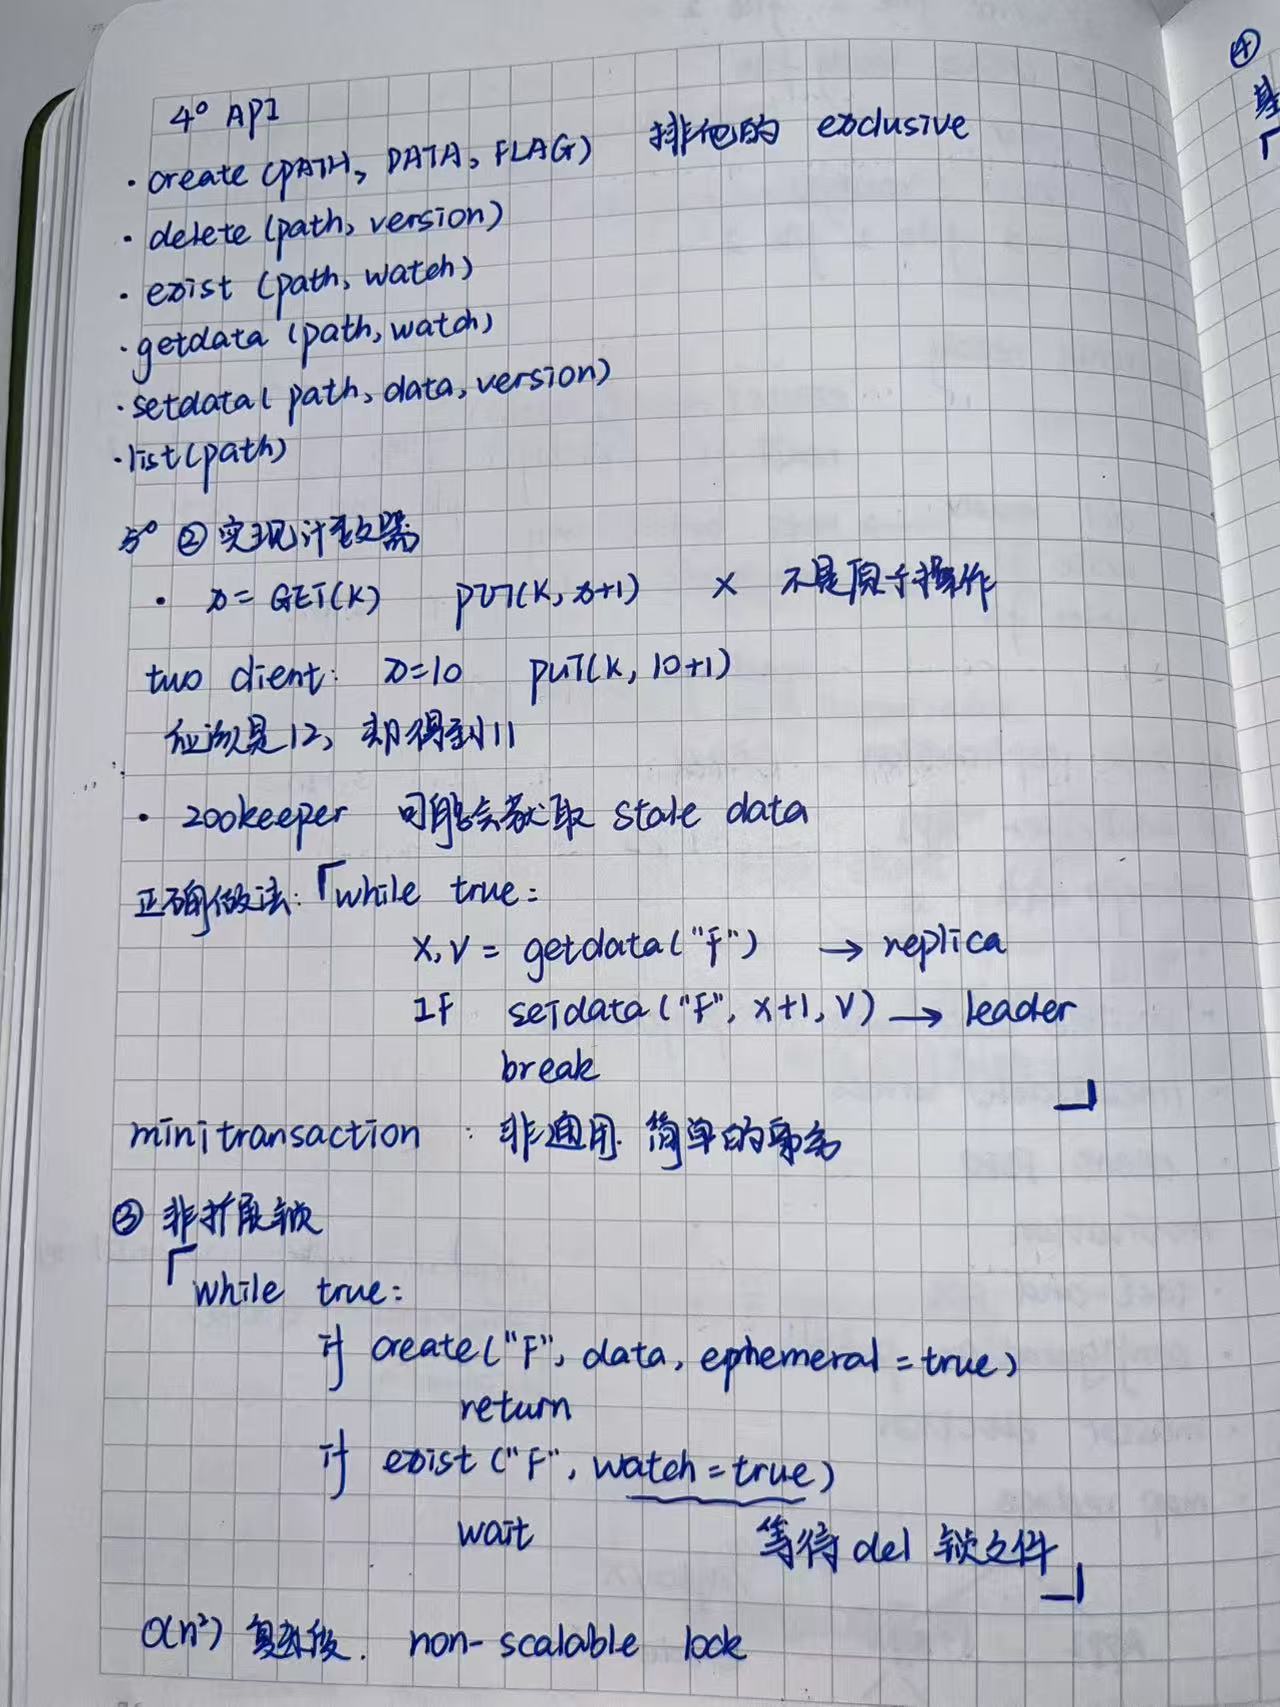 4° API
· create (PATH, DATA, FLAG) 排他的 exclusive
· delete (path, version)
· exist (path, watch)
· getdata (path, watch)
· setdata( path, data, version)
· list(path)
5° ② 实现计数器
· x = GET(K) PUT(K, x+1) × 不是原子操作
two client: x=10 PUT(K, 10+1)
应该是12, 却得到11
· zookeeper 可能会获取 stale data
正确做法:「while true:
X, V = getdata("F") → replica
IF setdata("F", X+1, V) → leader
break 」
mini transaction : 非通用 简单的事务
③ 非扩展锁
「while true:
if create("F", data, ephemeral = true)
return
if exist ("F", watch = true)
wait 等待 del 锁文件 」
O(n²) 复杂度. non-scalable lock
④
基
「